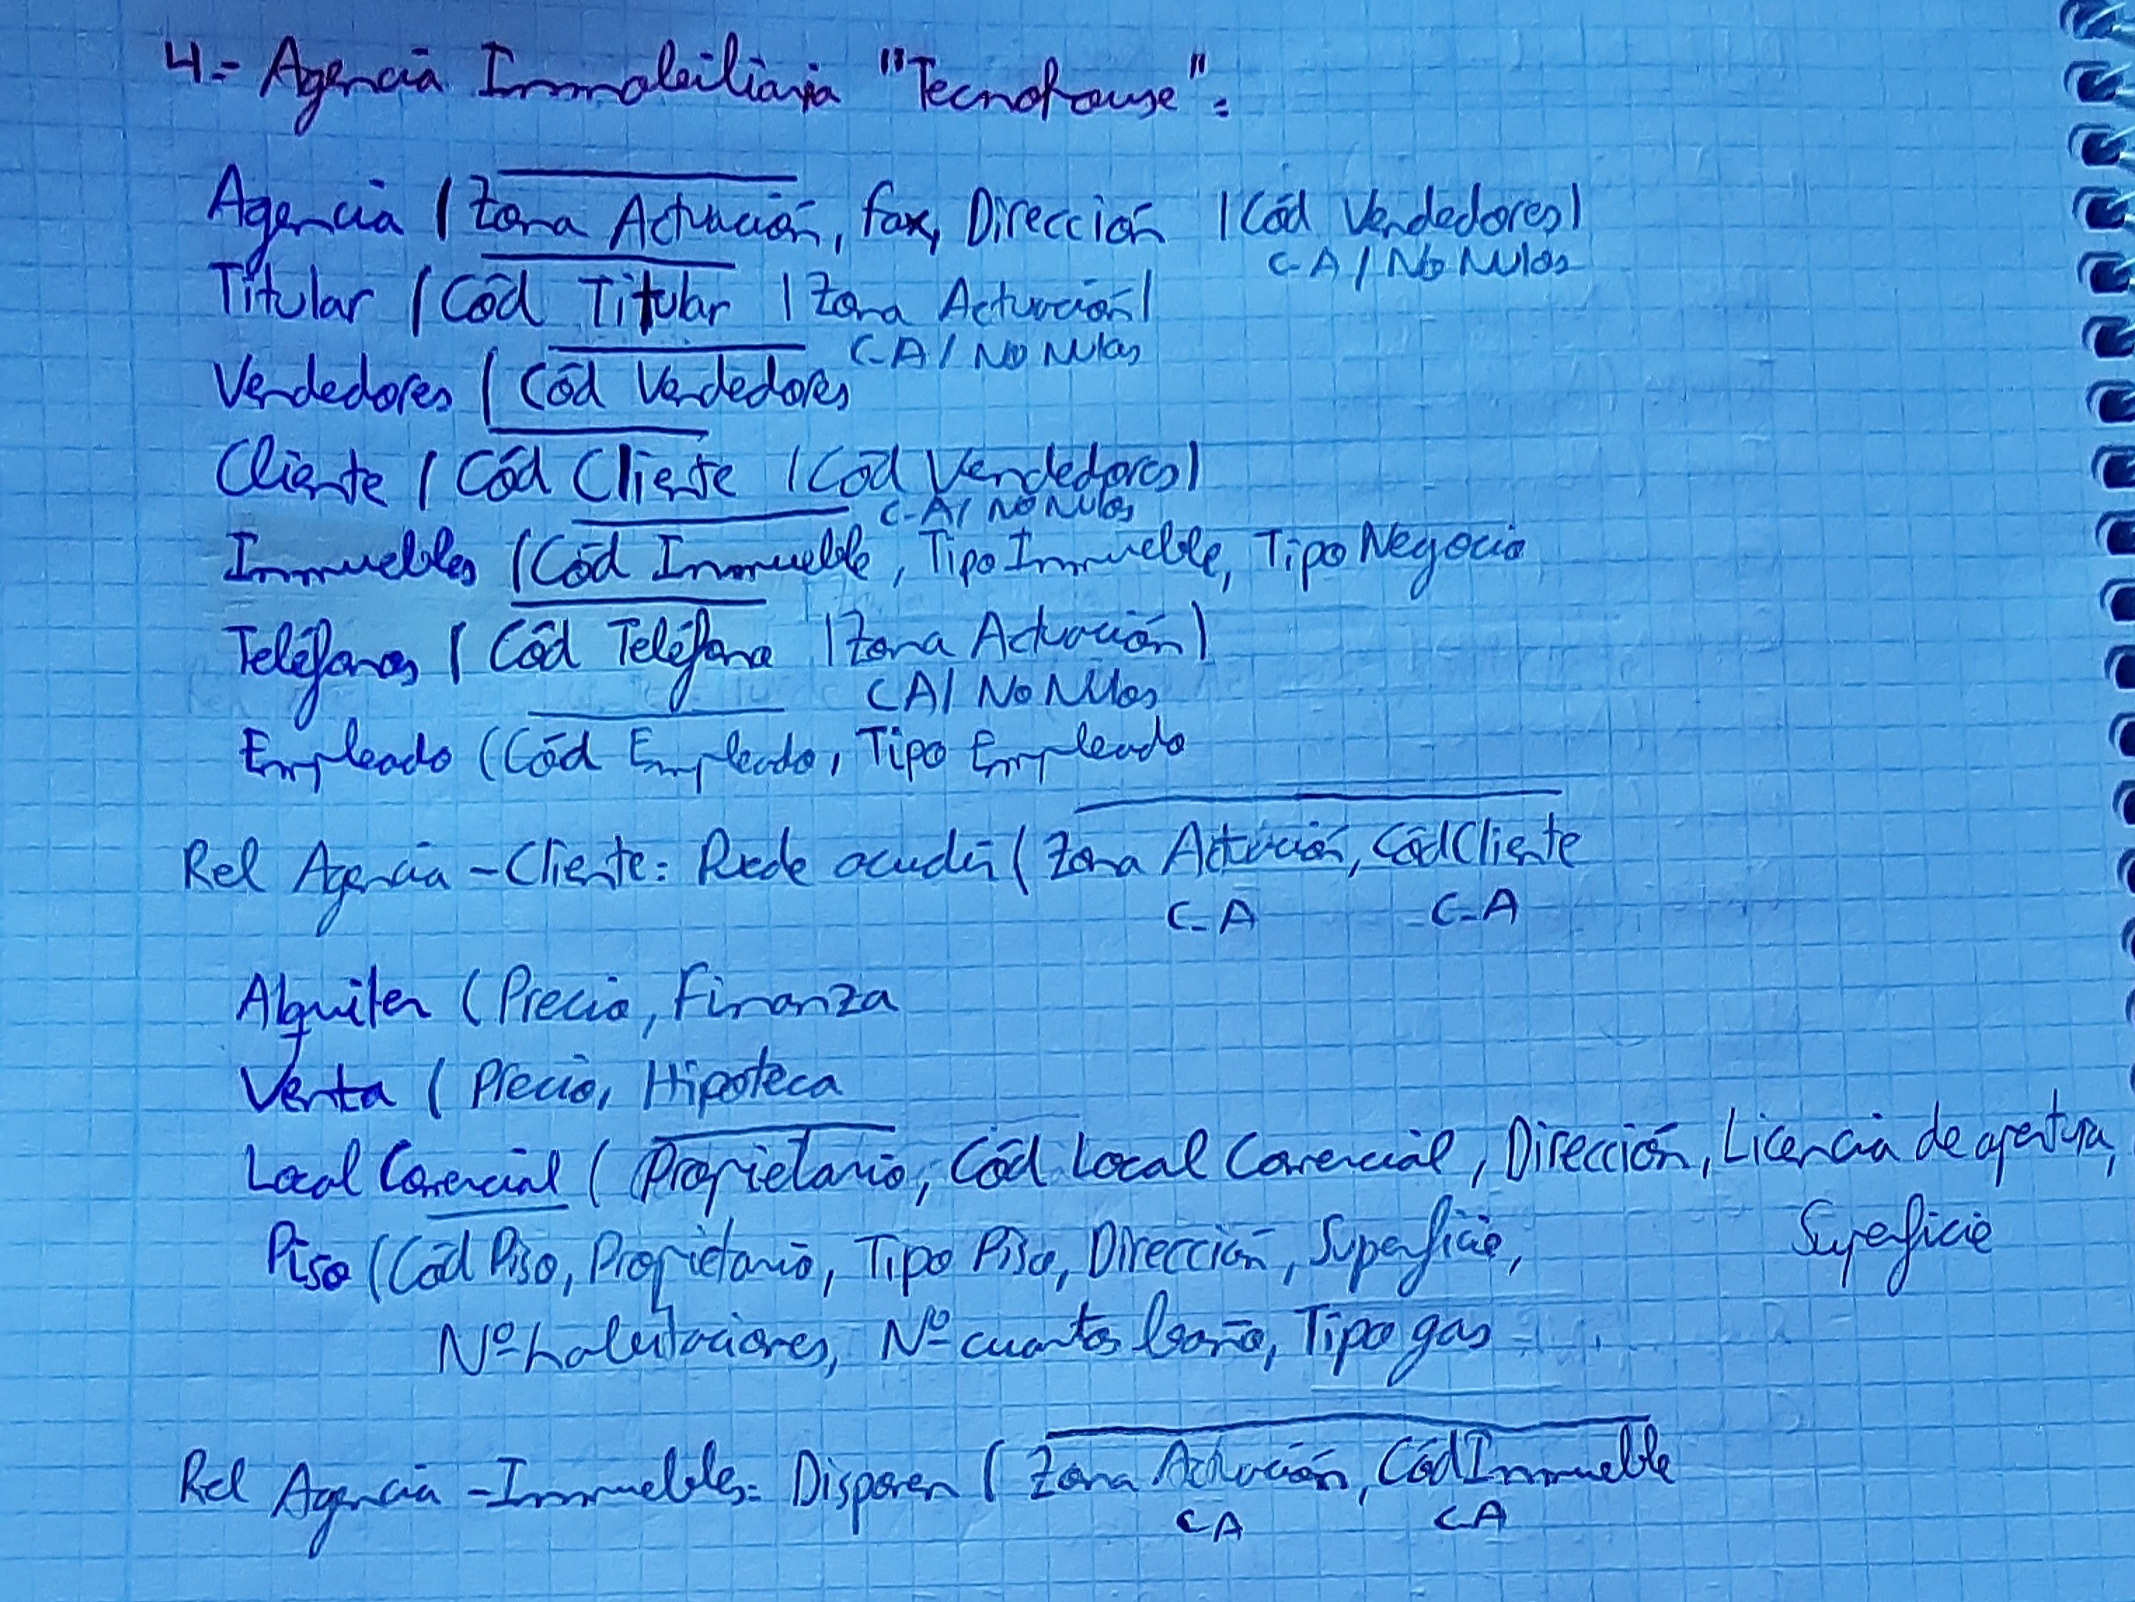 4.- Agencia Inmobiliaria "Tecnohouse":
Agencia (Zona Actuación, fax, Dirección |Cód Vendedores)
C-A / No Nulos
Titular (Cód Titular |Zona Actuación)
C-A / No Nulos
Vendedores (Cód Vendedores
Cliente (Cód Cliente |Cód Vendedores)
C-A / No Nulos
Inmuebles (Cód Inmueble, Tipo Inmueble, Tipo Negocio
Teléfonos (Cód Teléfono |Zona Actuación)
CA / No Nulos
Empleado (Cód Empleado, Tipo Empleado
Rel Agencia - Cliente: Puede acudir (Zona Actuación, CódCliente
C-A C-A
Alquiler (Precio, Finanza
Venta (Precio, Hipoteca
Local Comercial (Propietario, Cód Local Comercial, Dirección, Licencia de apertura,
Superficie
Piso (Cód Piso, Propietario, Tipo Piso, Dirección, Superficie,
Nº habitaciones, Nº cuartos baño, Tipo gas
Rel Agencia - Inmuebles: Disponen (Zona Actuación, CódInmueble
CA CA